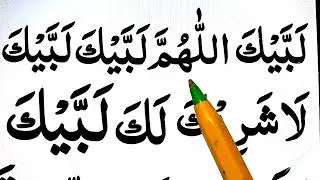 لَبَّيْكَ اللّٰهُمَّ لَبَّيْكَ لَبَّيْكَ
لَا شَرِيْكَ لَكَ لَبَّيْكَ